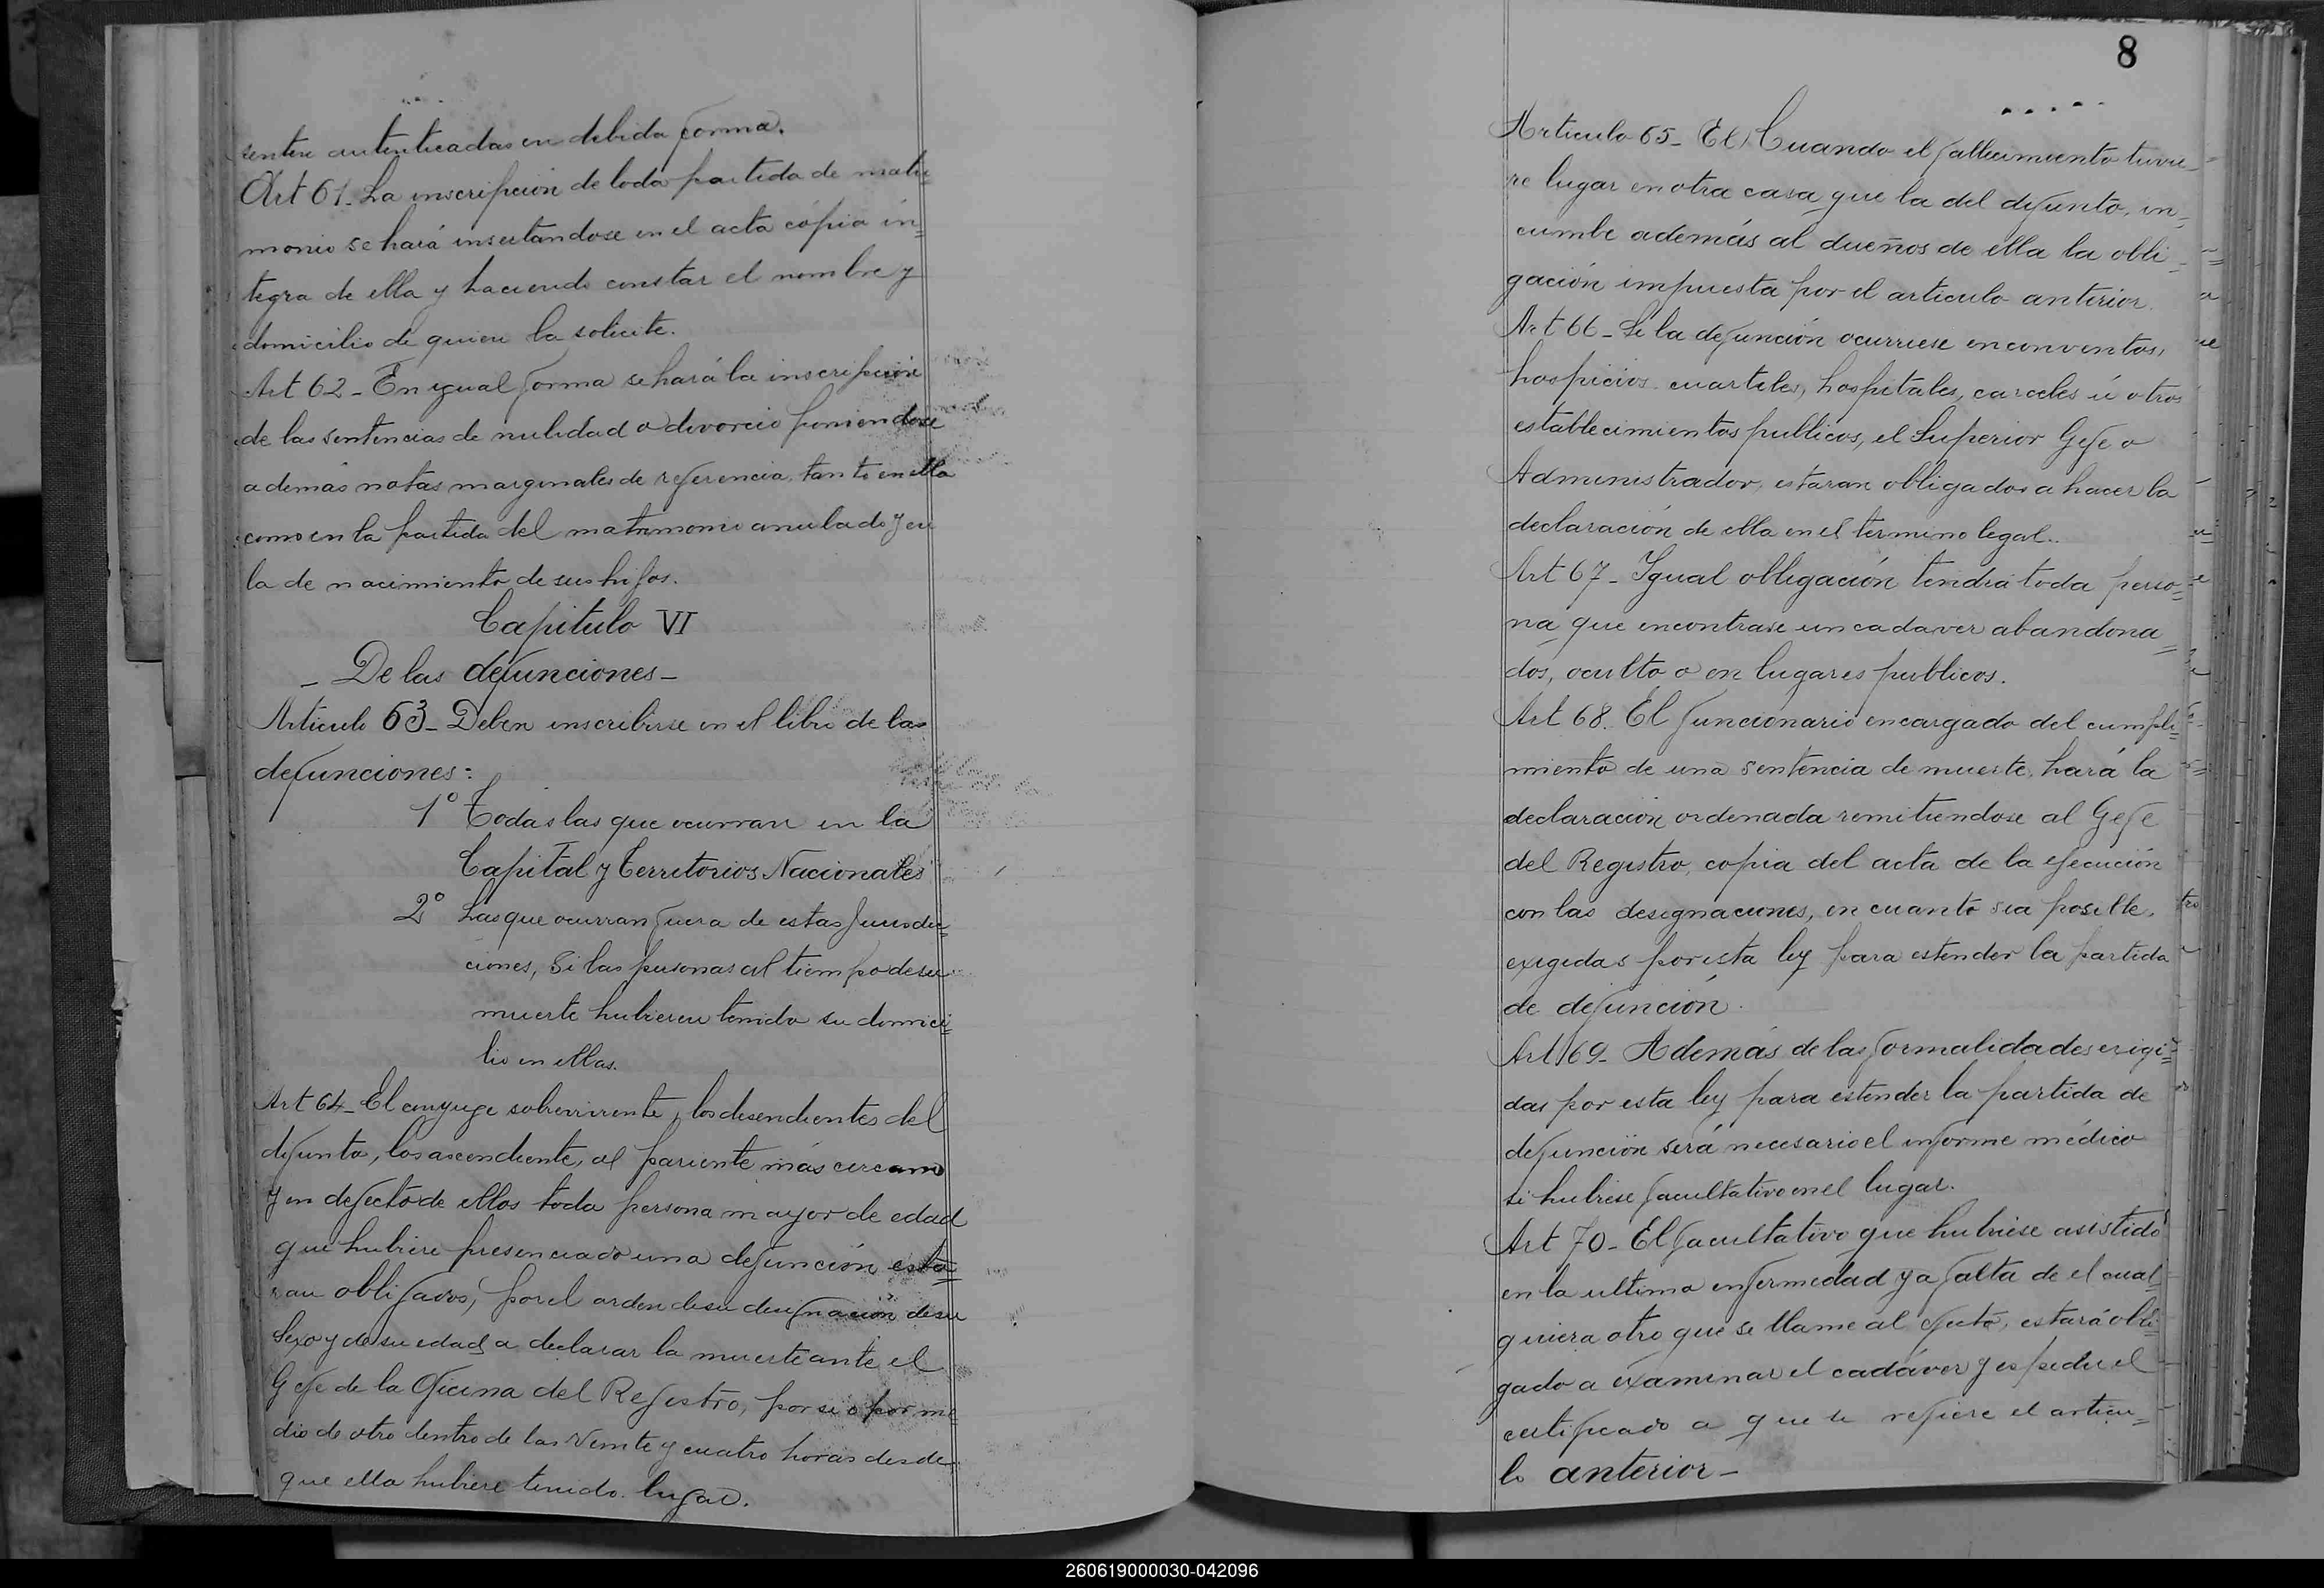 senten autenticadas en debida forma.
Art 61. La inscripción de toda partida de matri
monio se hará insertandose en el acta cópia ín=
tegra de ella y haciendo constar el nombre y
domicilio de quien la solicite.
Art 62 - En ygual forma se hará la inscripción
de las sentencias de nulidad o divorcio poniendose
además notas marginales de referencia, tanto en ella
como en la partida del matrimonio anulado y en
la de nacimiento de sus hijos.
Capitulo VI
- De las defunciones -
Articulo 63 - Deben inscribirse en el libro de las
defunciones:
1º Todas las que ocurran en la
Capital y Territorios Nacionales
2º Las que ocurran fuera de estas Jurisdic=
ciones, Si las personas al tiempo de su
muerte hubieren tenido su domici=
lio en ellas.
Art 64 - El conyuge sobreviviente, los desendientes del
difunto, los ascendiente, el pariente más cercano
y en defecto de ellos toda persona mayor de edad
que hubiere presenciado una defunción esta=
ran obligados, por el orden de su designación de su
Sexo y de su edad a declarar la muerte ante el
Gefe de la Oficina del Registro, por si o por me=
dio de otro dentro de las veinte y cuatro horas desde
que ella hubiere tenido lugar.
8
Articulo 65 - El Cuando el fallecimiento tuvie=
re lugar en otra casa que la del difunto, in=
cumbe además al dueños de ella la obli=
gación impuesta por el articulo anterior.
Art 66 - Si la defunción ocurriese en conventos,
hospicios cuarteles, hospitales, carceles ú otros
establecimientos publicos, el Superior Gefe o
Administrador, estaran obligados a hacer la
declaración de ella en el termino legal.
Art 67 - Ygual obligación tendrá toda perso=
na que encontrase un cadaver abandona=
dos, oculto o en lugares publicos.
Art 68. El funcionario encargado del cumpli=
miento de una sentencia de muerte, hará la
declaracion ordenada remitiendose al Gefe
del Registro, copia del acta de la ejecución
con las designaciones, en cuanto sea posible,
exigidas por esta ley para estender la partida
de defunción.
Art 69 - Además de las formalidades exigi=
das por esta ley para estender la partida de
defunción será necesario el informe médico
si hubiese facultativo en el lugar.
Art 70 - El facultativo que hubiese asistido
en la ultima enfermedad y a falta de el cual
quiera otro que se llame al efecto, estará obli=
gado a examinar el cadáver y espedir el
certificado a que se refiere el articu=
lo anterior -
260619000030-042096